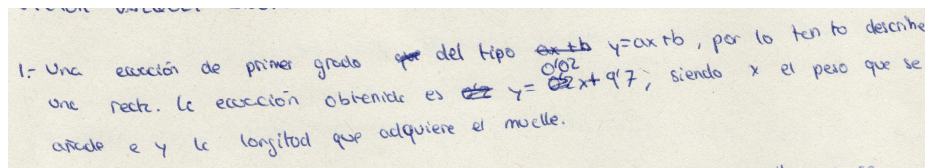 1.- Una ecuación de primer grado del tipo y=ax+b, por lo tanto describe
una recta. La ecuación obtenida es y= 0'02x+9'7; siendo x el peso que se
añade e y la longitud que adquiere el muelle.